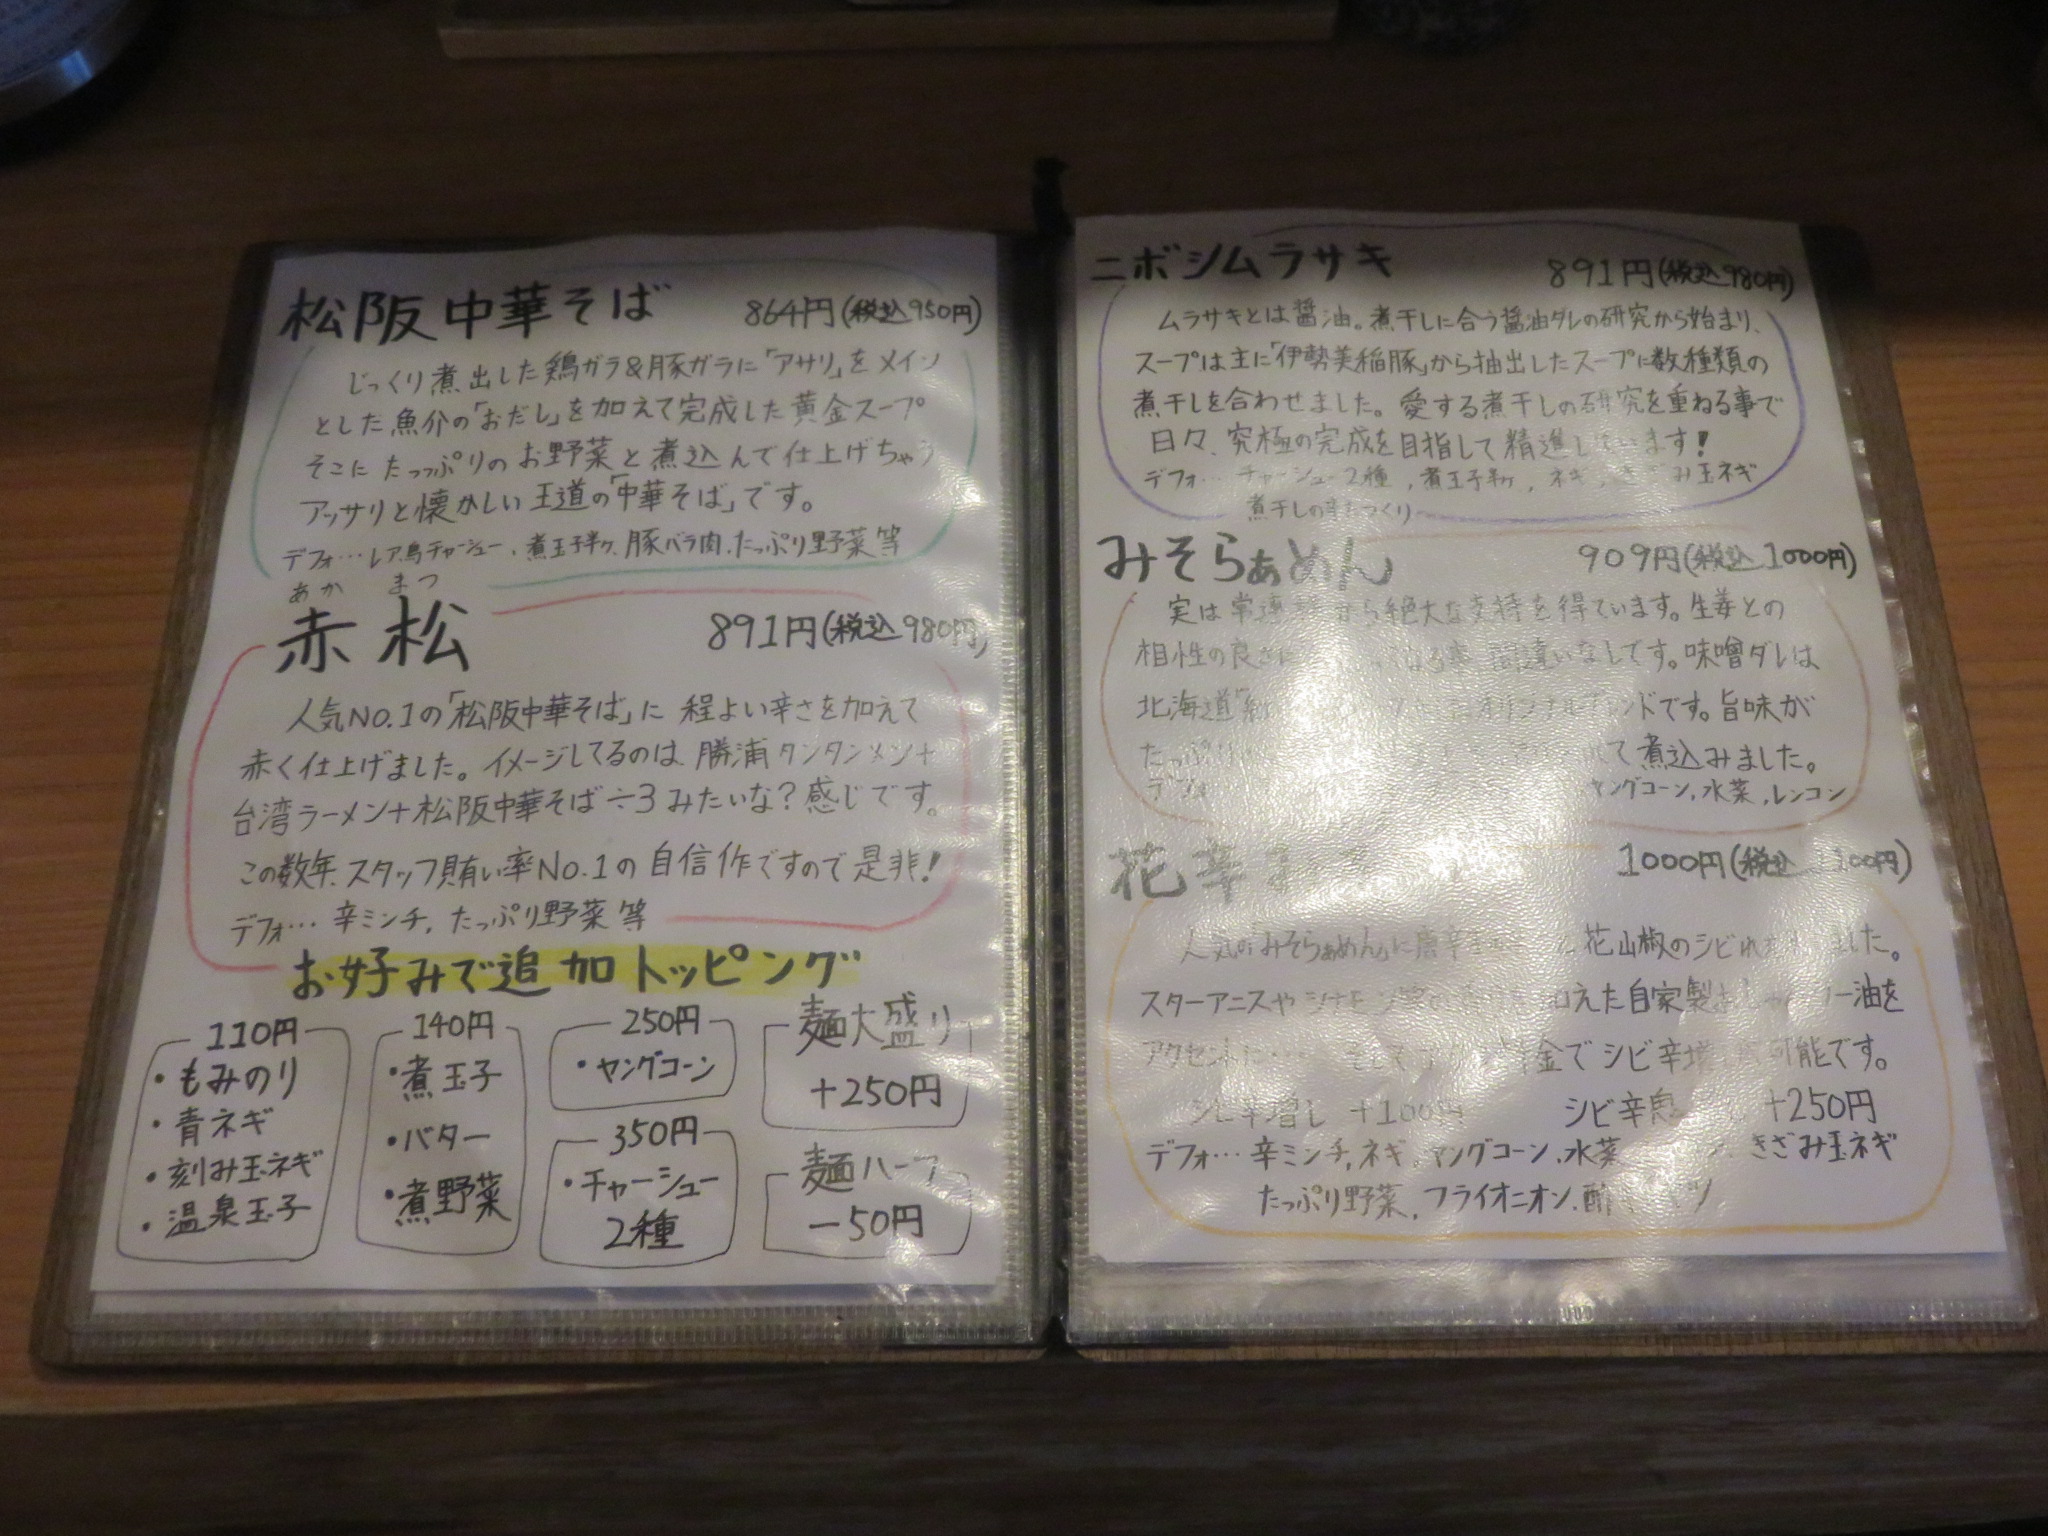 松阪中華そば 864円(税込950円)
じっくり煮出した鶏ガラ&豚ガラに「アサリ」をメイン
とした魚介の「おだし」を加えて完成した黄金スープ
そこに たっっぷりのお野菜と煮込んで仕上げちゃう
アッサリと懐かしい王道の「中華そば」です。
デフォ…レア鳥チャーシュー、煮玉子半ヶ、豚バラ肉、たっぷり野菜等
あか まつ
赤松 891円(税込980円)
人気NO.1の「松阪中華そば」に 程よい辛さを加えて
赤く仕上げました。イメージしてるのは、勝浦タンタンメン+
台湾ラーメン+松阪中華そば÷3みたいな?感じです。
この数年、スタッフ賄い率No.1の自信作ですので是非!
デフォ…辛ミンチ、たっぷり野菜等
お好みで追加トッピング
110円
・もみのり
・青ネギ
・刻み玉ネギ
・温泉玉子
140円
・煮玉子
・バター
・煮野菜
250円
・ヤングコーン
350円
・チャーシュー
2種
麺大盛り
+250円
麺ハーフ
-50円
ニボシムラサキ 891円(税込980円)
ムラサキとは醤油。煮干しに合う醤油ダレの研究から始まり、
スープは主に「伊勢美稲豚」から抽出したスープに数種類の
煮干しを合わせました。愛する煮干しの研究を重ねる事で
日々、究極の完成を目指して精進しています!
デフォ…チャーシュー2種、煮玉子半ヶ、ネギ、きざみ玉ネギ
煮干しの
みそらぁめん 909円(税込1000円)
実は常連 から絶大な支持を得ています。生姜との
相性の良さに 間違いなしです。味噌ダレは
北海道 ンドです。旨味が
たっぷり て煮込みました。
デフォ ヤングコーン、水菜、レンコン
花辛 1000円(税込1100円)
人気の「みそらぁめん」に唐辛 と花山椒のシビれ ました。
スターアニスやシナモン 加えた自家製 油を
アクセントに… 金でシビ辛増 可能です。
シビ辛増し +100円 シビ辛 +250円
デフォ…辛ミンチ、ネギ、ヤングコーン、水菜 きざみ玉ネギ
たっぷり野菜、フライオニオン、酢